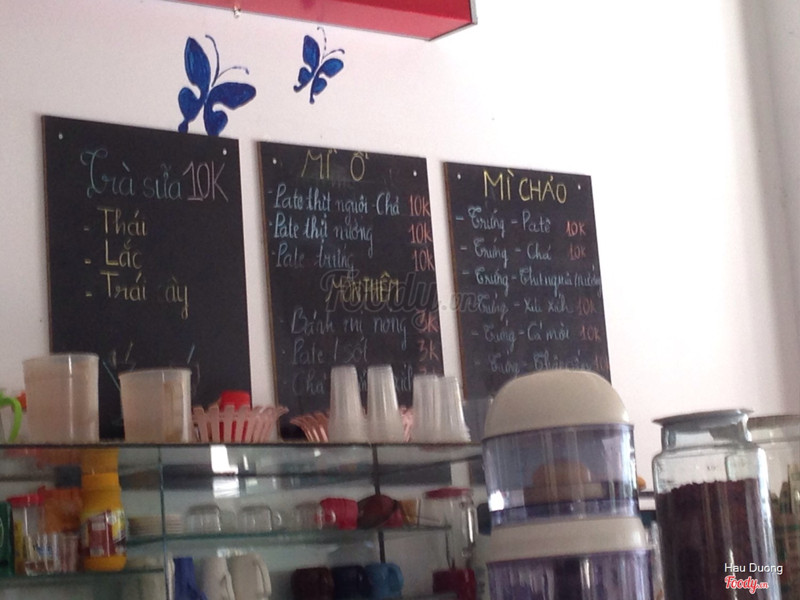 Trà sữa 10K
- Thái
- Lắc
- Trái cây
MÌ Ổ
- Pate thịt nguội - Chả 10K
- Pate thịt nướng 10K
- Pate trứng 10K
MÓN THÊM
- Bánh mì nóng 3K
- Pate / sốt 3K
- Chả
MÌ CHẢO
- Trứng - Patê 10K
- Trứng - Chả 10K
- Trứng - Thịt nguội / nướng
- Trứng - Xíu 10K
- Trứng - Cá mòi 10K
- Trứng
Foody.vn
Hau Duong
Foody.vn